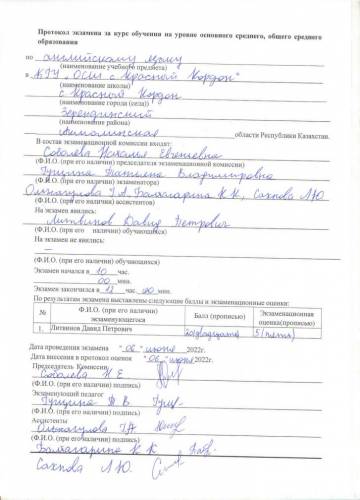 Протокол экзамена за курс обучения на уровне основного среднего, общего среднего
образования
по английскому языку
(наименование учебного предмета)
в КГУ "ОСШ с. Красный Кордон"
(наименование школы)
с. Красный Кордон
(наименование города (села))
Зерендинский
(наименование района)
Акмолинская области Республики Казахстан.
В состав экзаменационной комиссии входят:
Соболева Наталья Евгеньевна
(Ф.И.О. (при его наличии) председателя экзаменационной комиссии)
Гущина Татьяна Владимировна
(Ф.И.О. (при его наличии) экзаменатора)
Г.А. К.К., Л.Ю.
(Ф.И.О. (при его наличии) ассистентов)
На экзамен явились:
Литвинов Давид Петрович
(Ф.И.О. (при его наличии) обучающихся)
На экзамен не явились:
—
(Ф.И.О. (при его наличии) обучающихся)
Экзамен начался в 10 час.
00 мин.
Экзамен закончился в 12 час. 00 мин.
По результатам экзамена выставлены следующие баллы и экзаменационные оценки:
№ Ф.И.О. (при его наличии) экзаменующегося Балл (прописью) Экзаменационная оценка(прописью)
1. Литвинов Давид Петрович 20(двадцать) 5(пять)
Дата проведения экзамена "06" июня 2022г.
Дата внесения в протокол оценок "06" июня 2022г.
Председатель Комиссии
Соболева Н Е
(Ф.И.О. (при его наличии) подпись)
Экзаменующий педагог
Гущина Т В
(Ф.И.О. (при его наличии) подпись)
Ассистенты
Г.А.
(Ф.И.О. (при его наличии) подпись)
К К
Л.Ю.